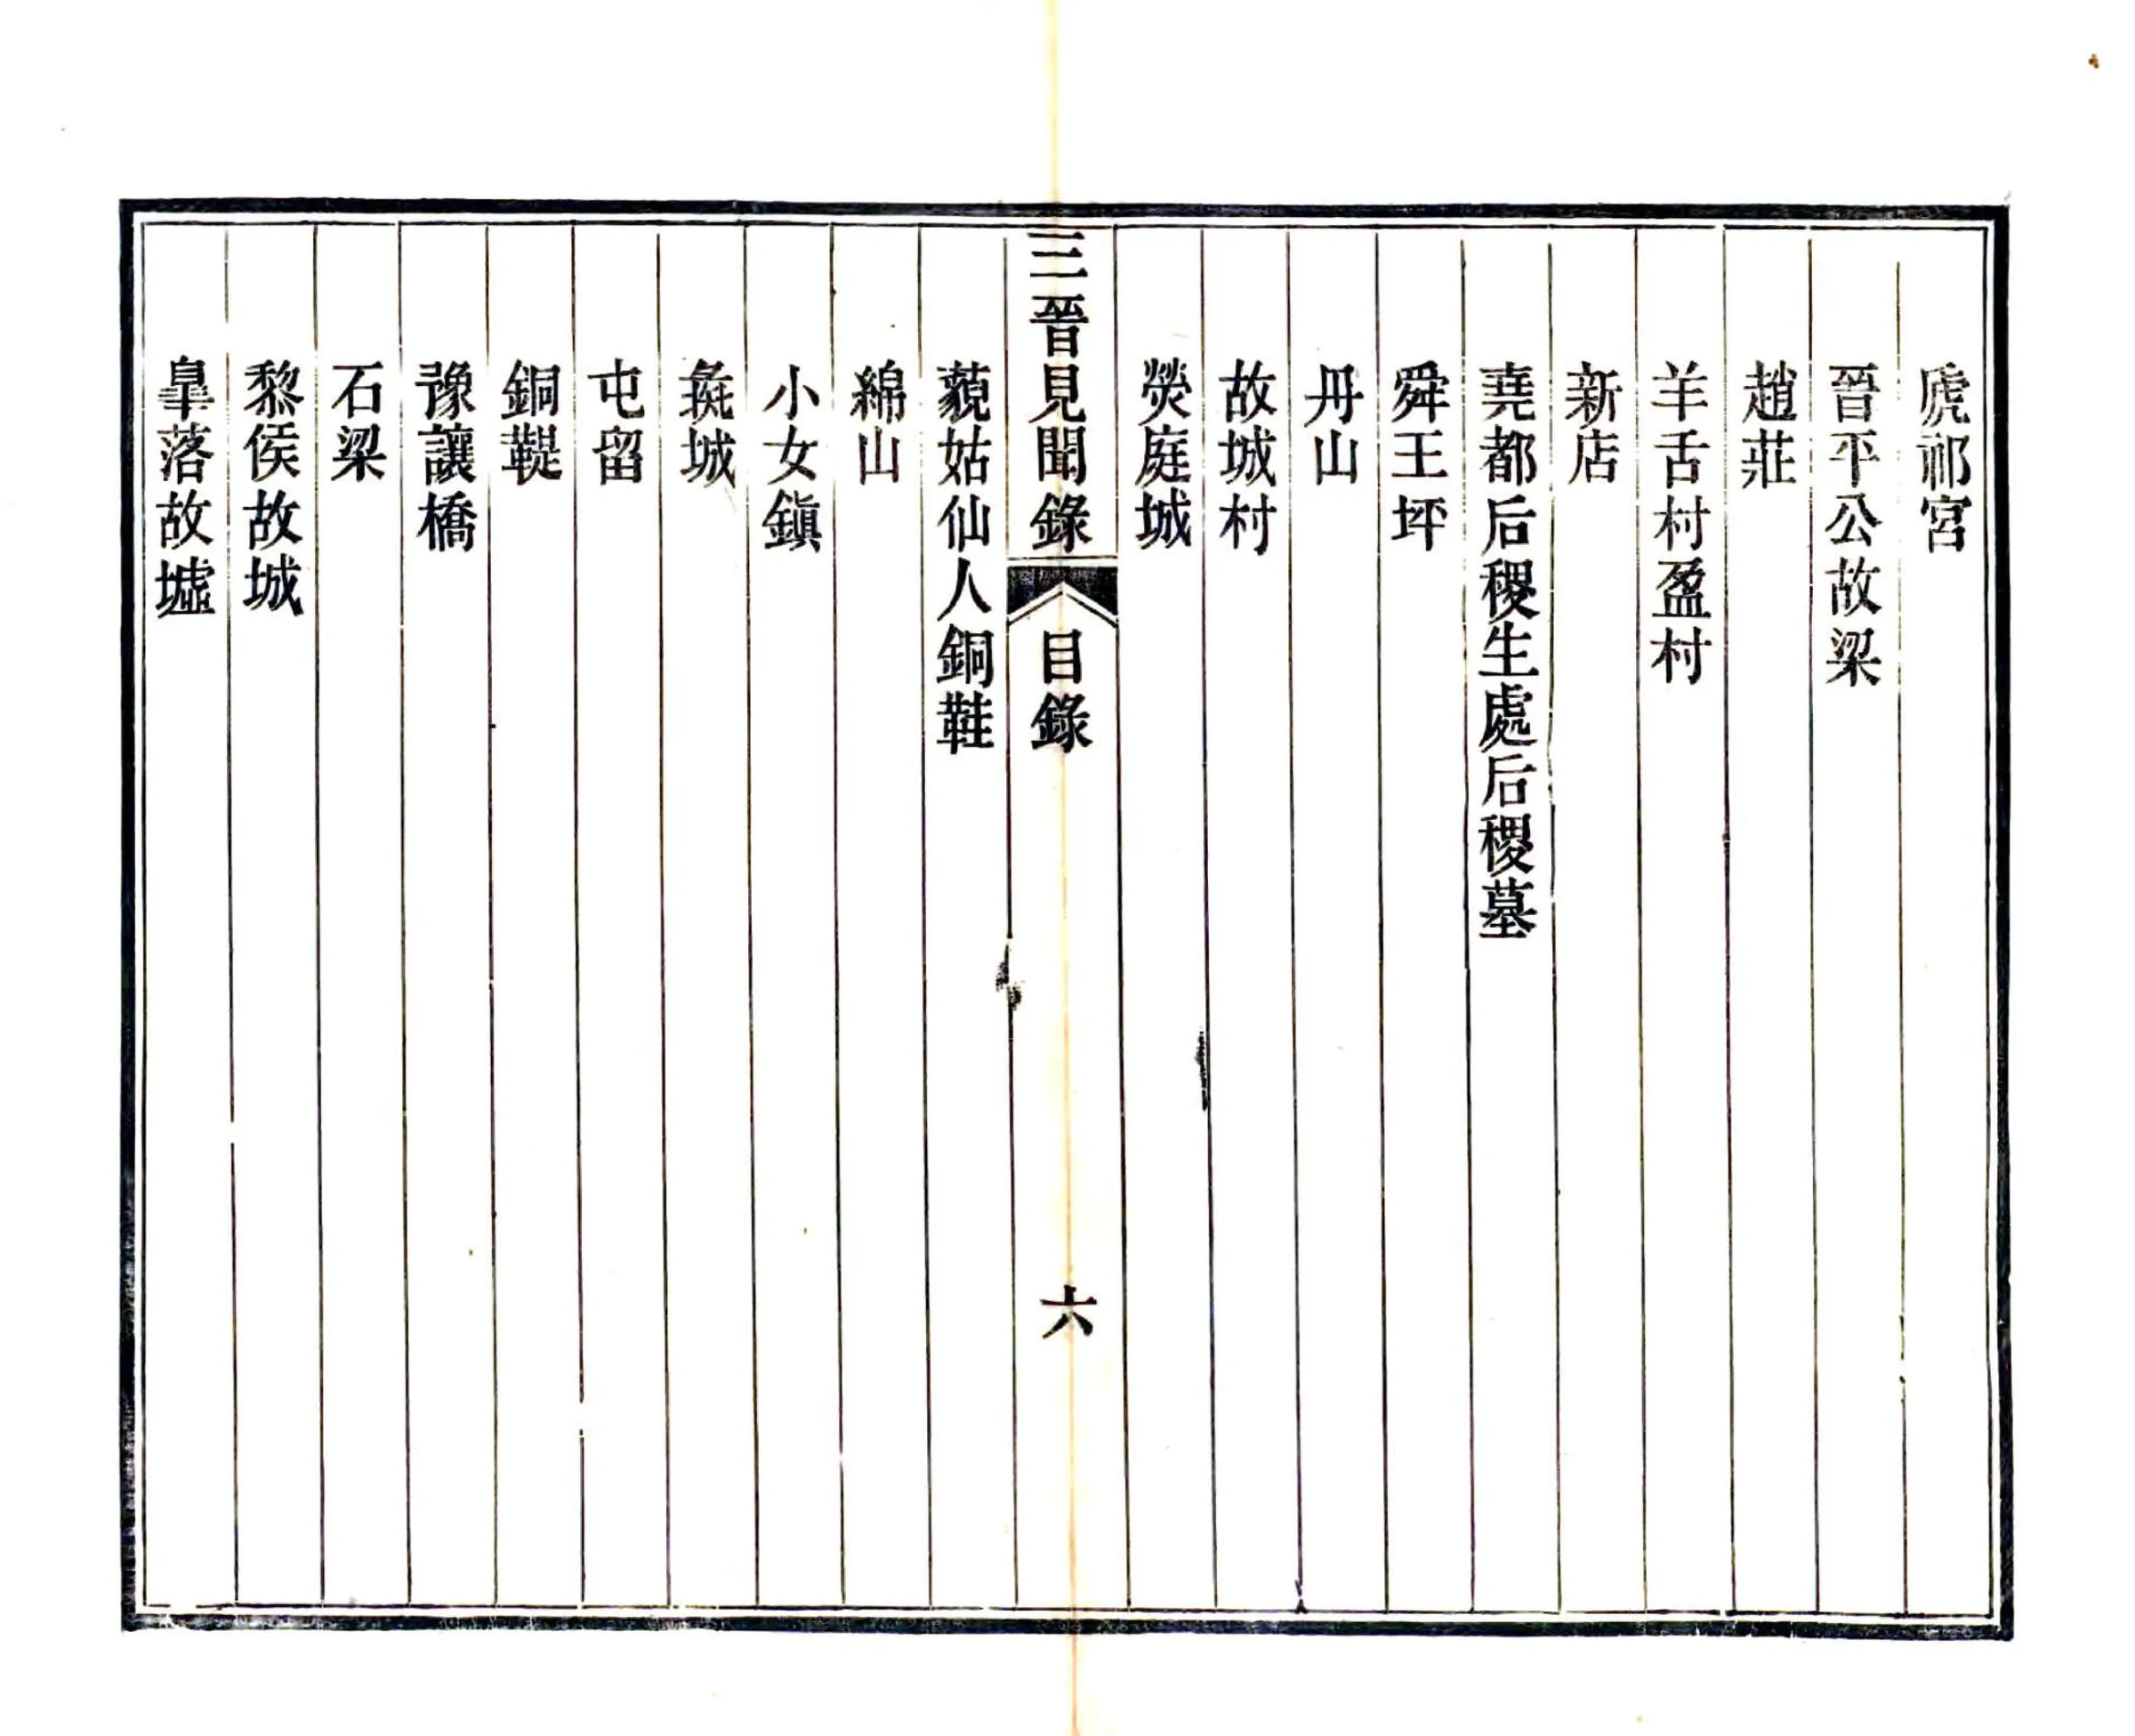 虒祁宮
晉平公故梁
趙莊
羊舌村盈村
新店
堯都后稷生處后稷墓
舜王坪
丹山
故城村
熒庭城
三晉見聞錄 目錄 六
藐姑仙人銅鞋
綿山
小女鎭
彘城
屯留
銅鞮
豫讓橋
石梁
黎侯故城
臯落故墟